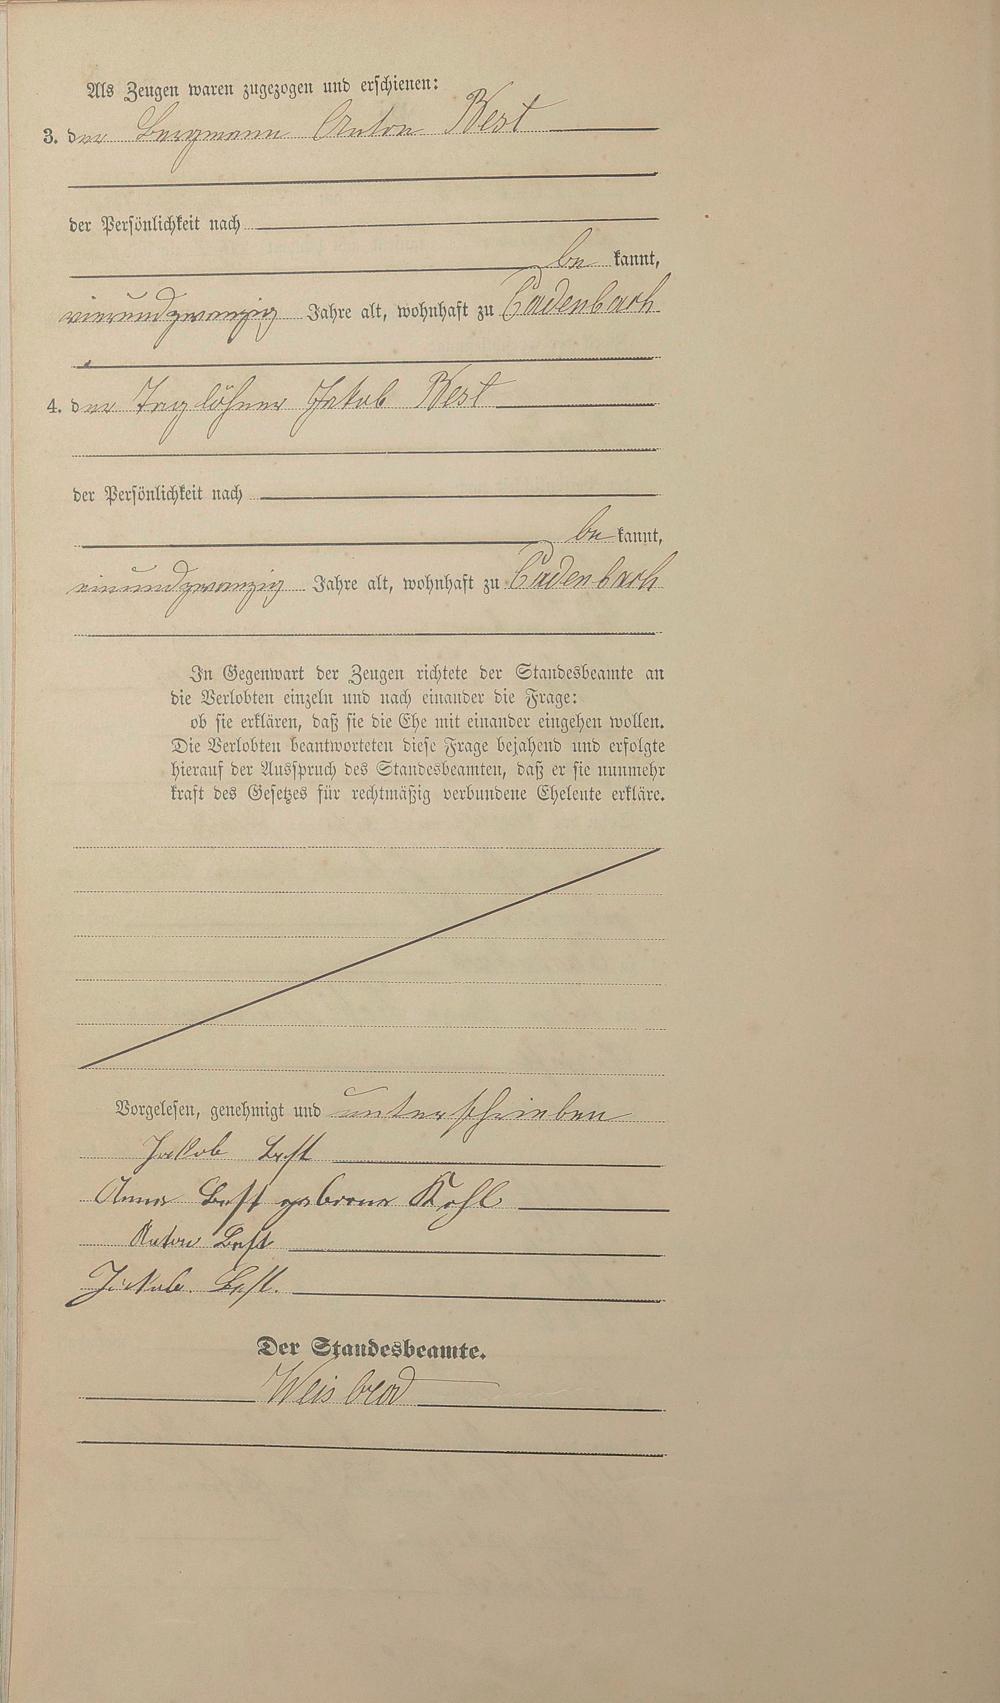 Als Zeugen waren zugezogen und erschienen:
3. der Bergmann Anton Best
der Persönlichkeit nach
be kannt,
vierundzwanzig Jahre alt, wohnhaft zu Cadenbach
4. der Taglöhner Jakob Best
der Persönlichkeit nach
be kannt,
einundzwanzig Jahre alt, wohnhaft zu Cadenbach
In Gegenwart der Zeugen richtete der Standesbeamte an
die Verlobten einzeln und nach einander die Frage:
ob sie erklären, daß sie die Ehe mit einander eingehen wollen.
Die Verlobten beantworteten diese Frage bejahend und erfolgte
hierauf der Ausspruch des Standesbeamten, daß er sie nunmehr
kraft des Gesetzes für rechtmäßig verbundene Eheleute erkläre.
Vorgelesen, genehmigt und unterschrieben
Jakob Best
Anna Best geborene Kohl
Anton Best
Jakob Best.
Der Standesbeamte.
Weisbrod